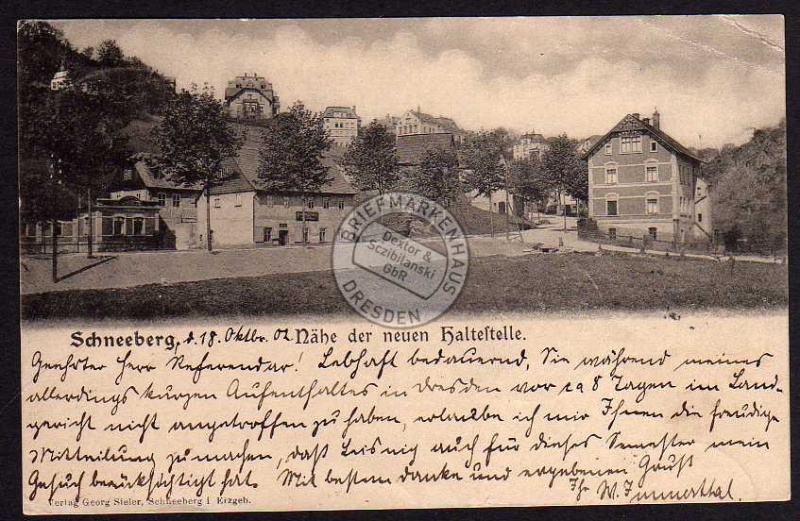 BRIEFMARKENHAUS
Dextor &
Sczibilanski
GbR
DRESDEN
Schneeberg, d. 18. Oktbr. 02 Nähe der neuen Haltestelle.
Geehrter Herr Referendar! Lebhaft bedauernd, Sie während meines
allerdings kurzen Aufenthaltes in Dresden vor ca 8 Tagen im Land-
gericht nicht angetroffen zu haben, erlaube ich mir Ihnen die freudige
Mitteilung zu machen, daß Leisnig auch für dieses Semester mein
Gesuch berücksichtigt hat. Mit bestem danke und ergebenen Gruß
Ihr W. Immerthal.
Verlag Georg Sieler, Schneeberg i Erzgeb.